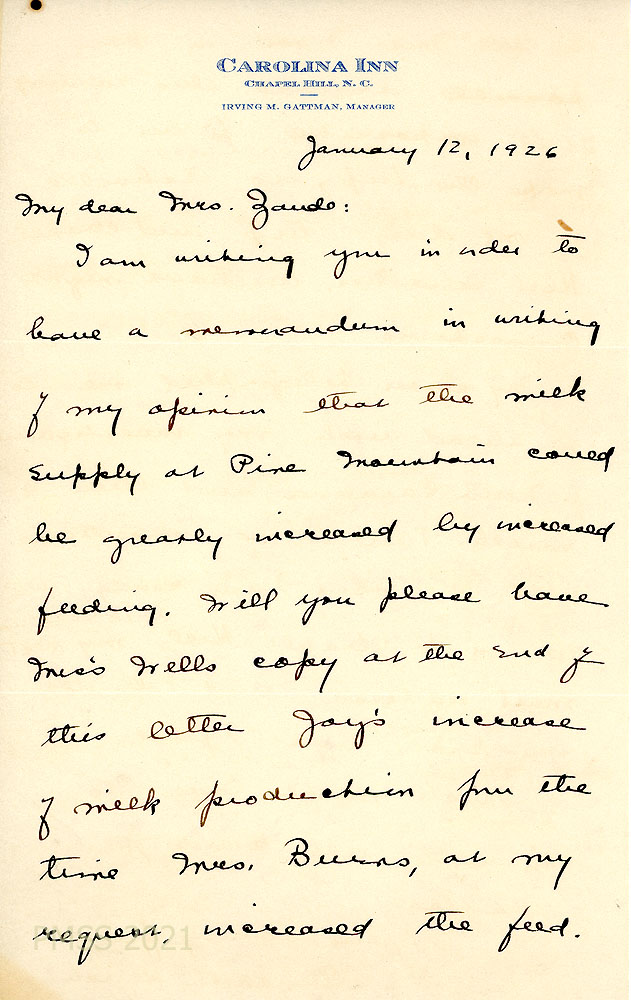 CAROLINA INN
CHAPEL HILL, N. C.
IRVING M. GATTMAN, MANAGER
January 12, 1926
My dear Mrs. Zande:
I am writing you in order to
have a memorandum in writing
of my opinion that the milk
supply at Pine Mountain could
be greatly increased by increased
feeding. Will you please have
Miss Wells copy at the end of
this letter Joy's increase
of milk production from the
time Mrs. Burns, at my
request, increased the feed.
PMSS 2021